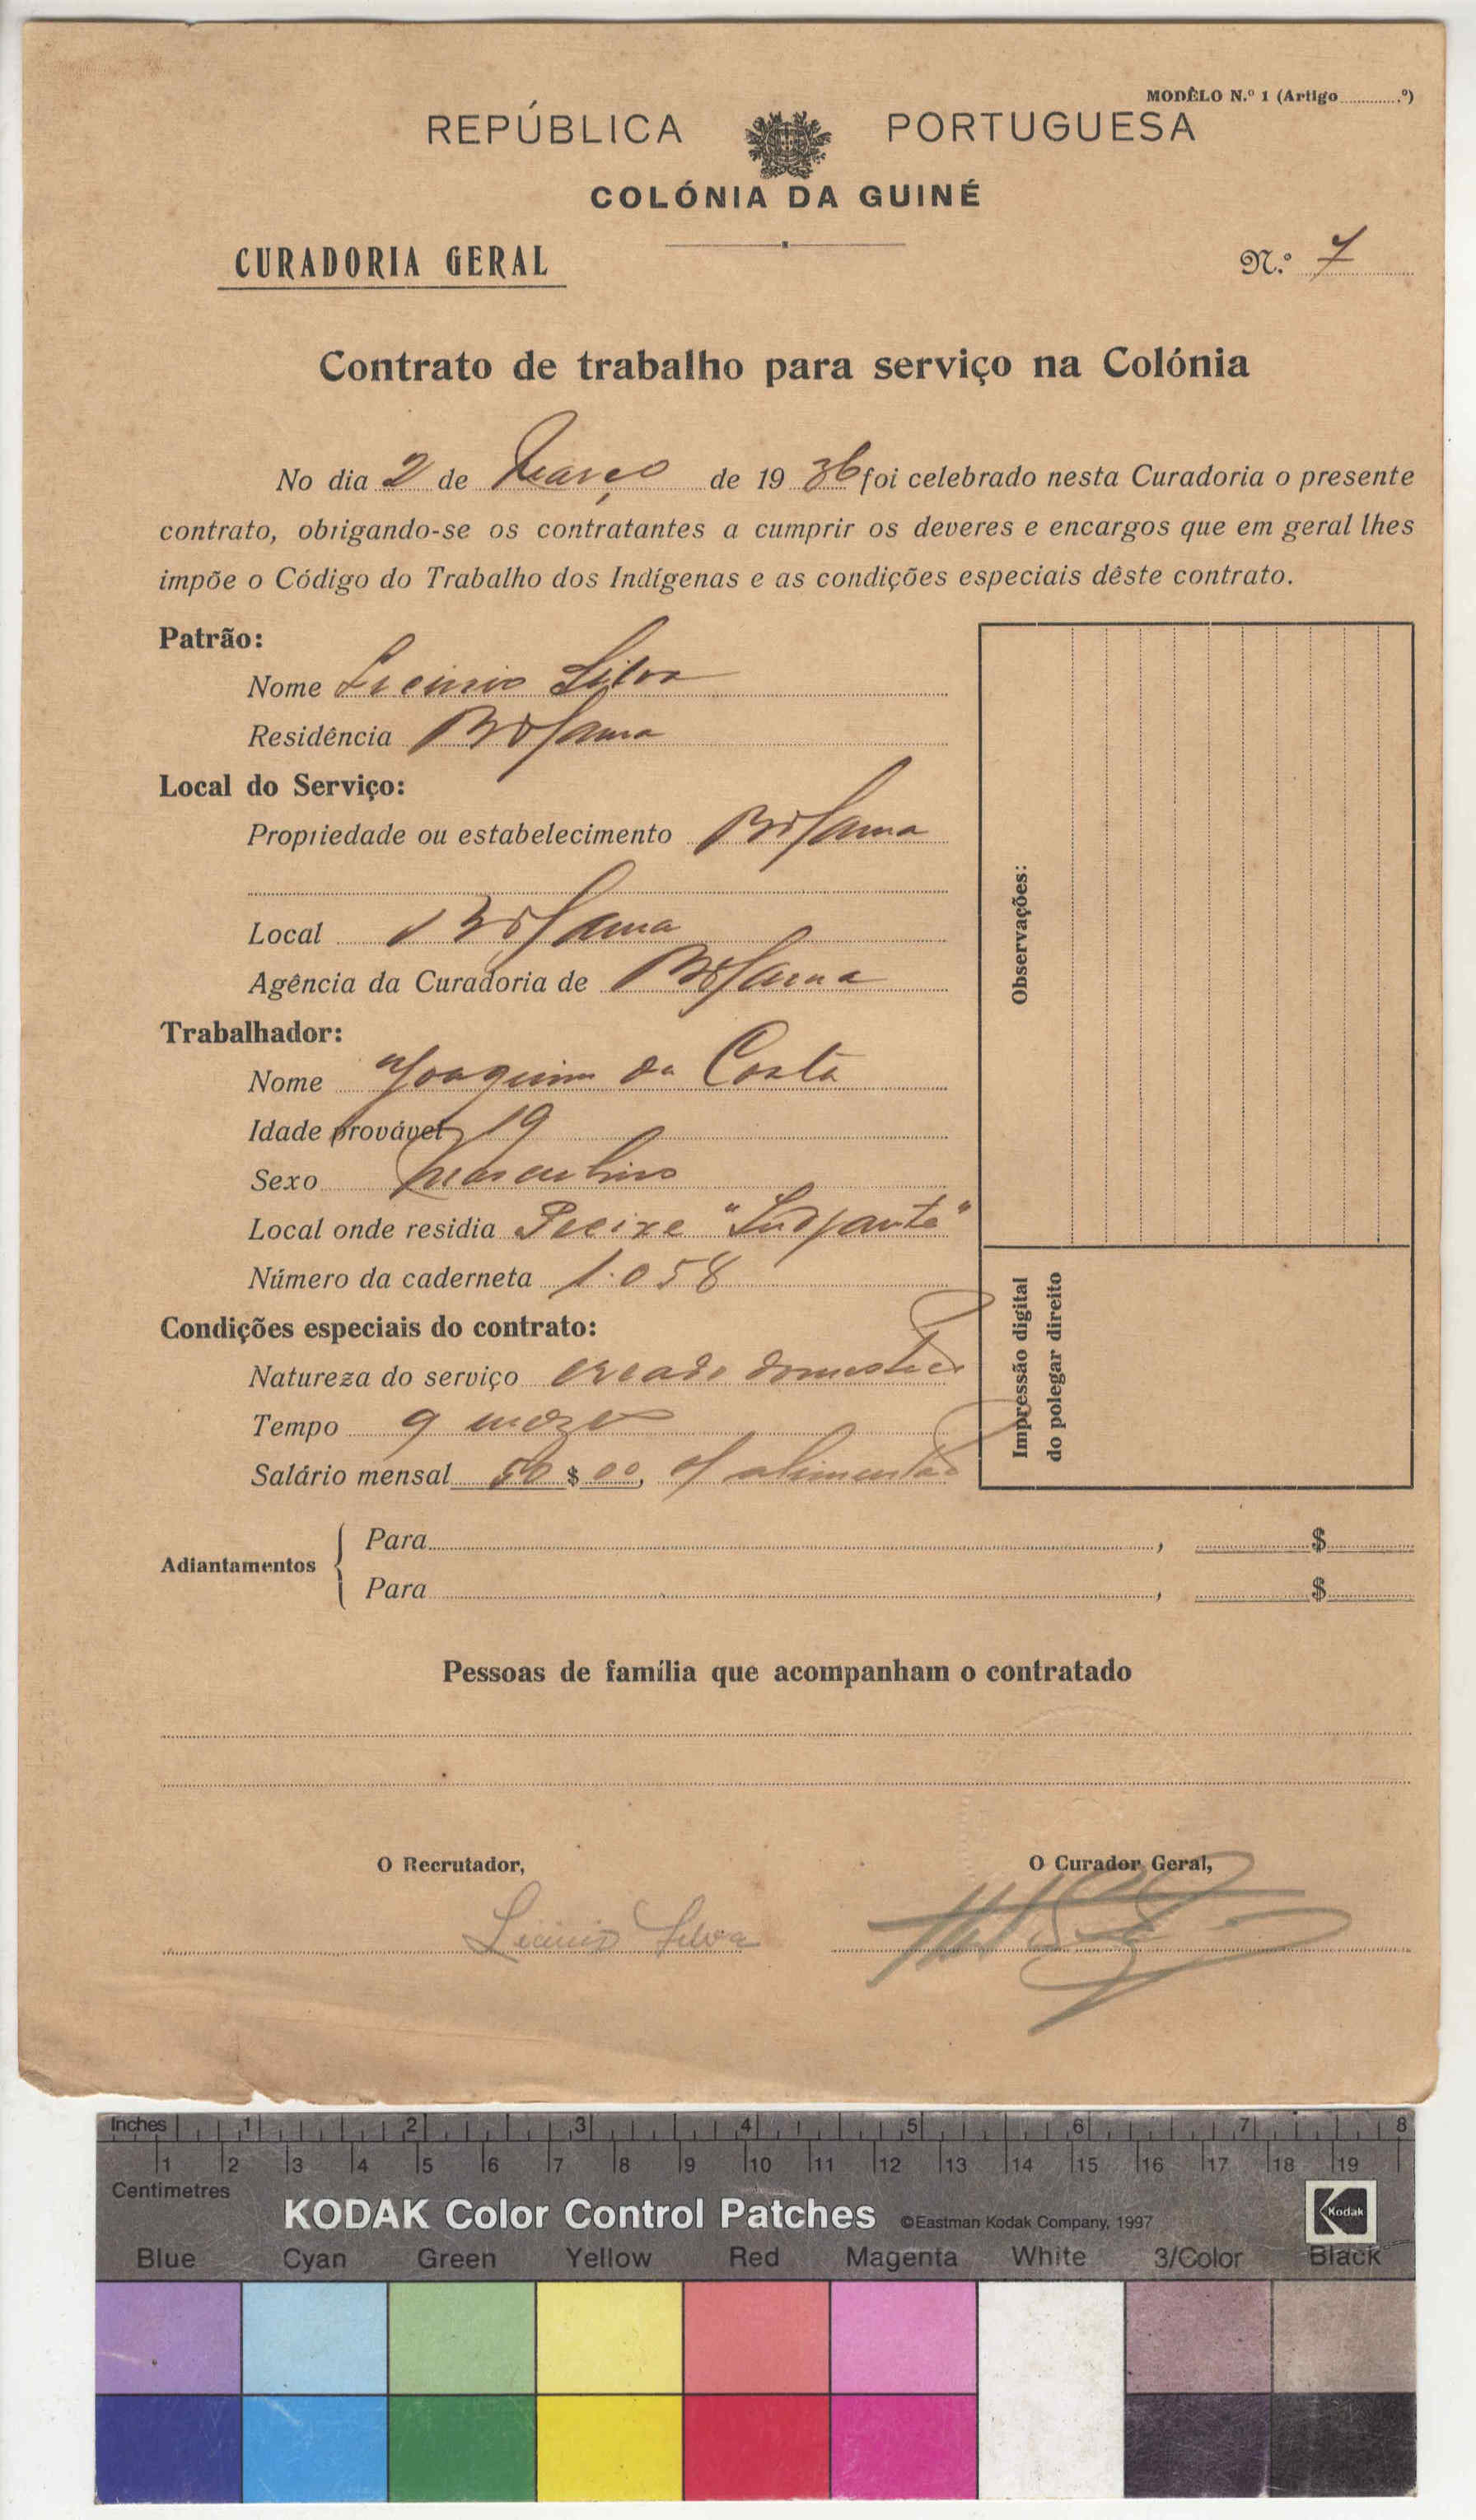 MODÊLO N.º 1 (Artigo..............º)
REPÚBLICA PORTUGUESA
COLÓNIA DA GUINÉ
CURADORIA GERAL
N.º 7
Contrato de trabalho para serviço na Colónia
No dia 2 de Março de 1936 foi celebrado nesta Curadoria o presente
contrato, obrigando-se os contratantes a cumprir os deveres e encargos que em geral lhes
impõe o Código do Trabalho dos Indígenas e as condições especiais dêste contrato.
Patrão:
Nome Licinio Silva
Residência Bolama
Local do Serviço:
Propriedade ou estabelecimento Bolama
Local Bolama
Agência da Curadoria de Bolama
Trabalhador:
Nome Joaquim da Costa
Idade provável 19
Sexo Masculino
Local onde residia Pecixe
Número da caderneta 1.058
Condições especiais do contrato:
Natureza do serviço creado domestico
Tempo 9 mezes
Salário mensal 50$00, c/ alimentação
Observações:
Impressão digital
do polegar direito
Adiantamentos
Para , $
Para , $
Pessoas de família que acompanham o contratado
O Recrutador,
O Curador Geral,
Licinio Silva
Inches 1 2 3 4 5 6 7 8
1 2 3 4 5 6 7 8 9 10 11 12 13 14 15 16 17 18 19
Centimetres
KODAK Color Control Patches ©Eastman Kodak Company, 1997
Kodak
Blue Cyan Green Yellow Red Magenta White 3/Color Black